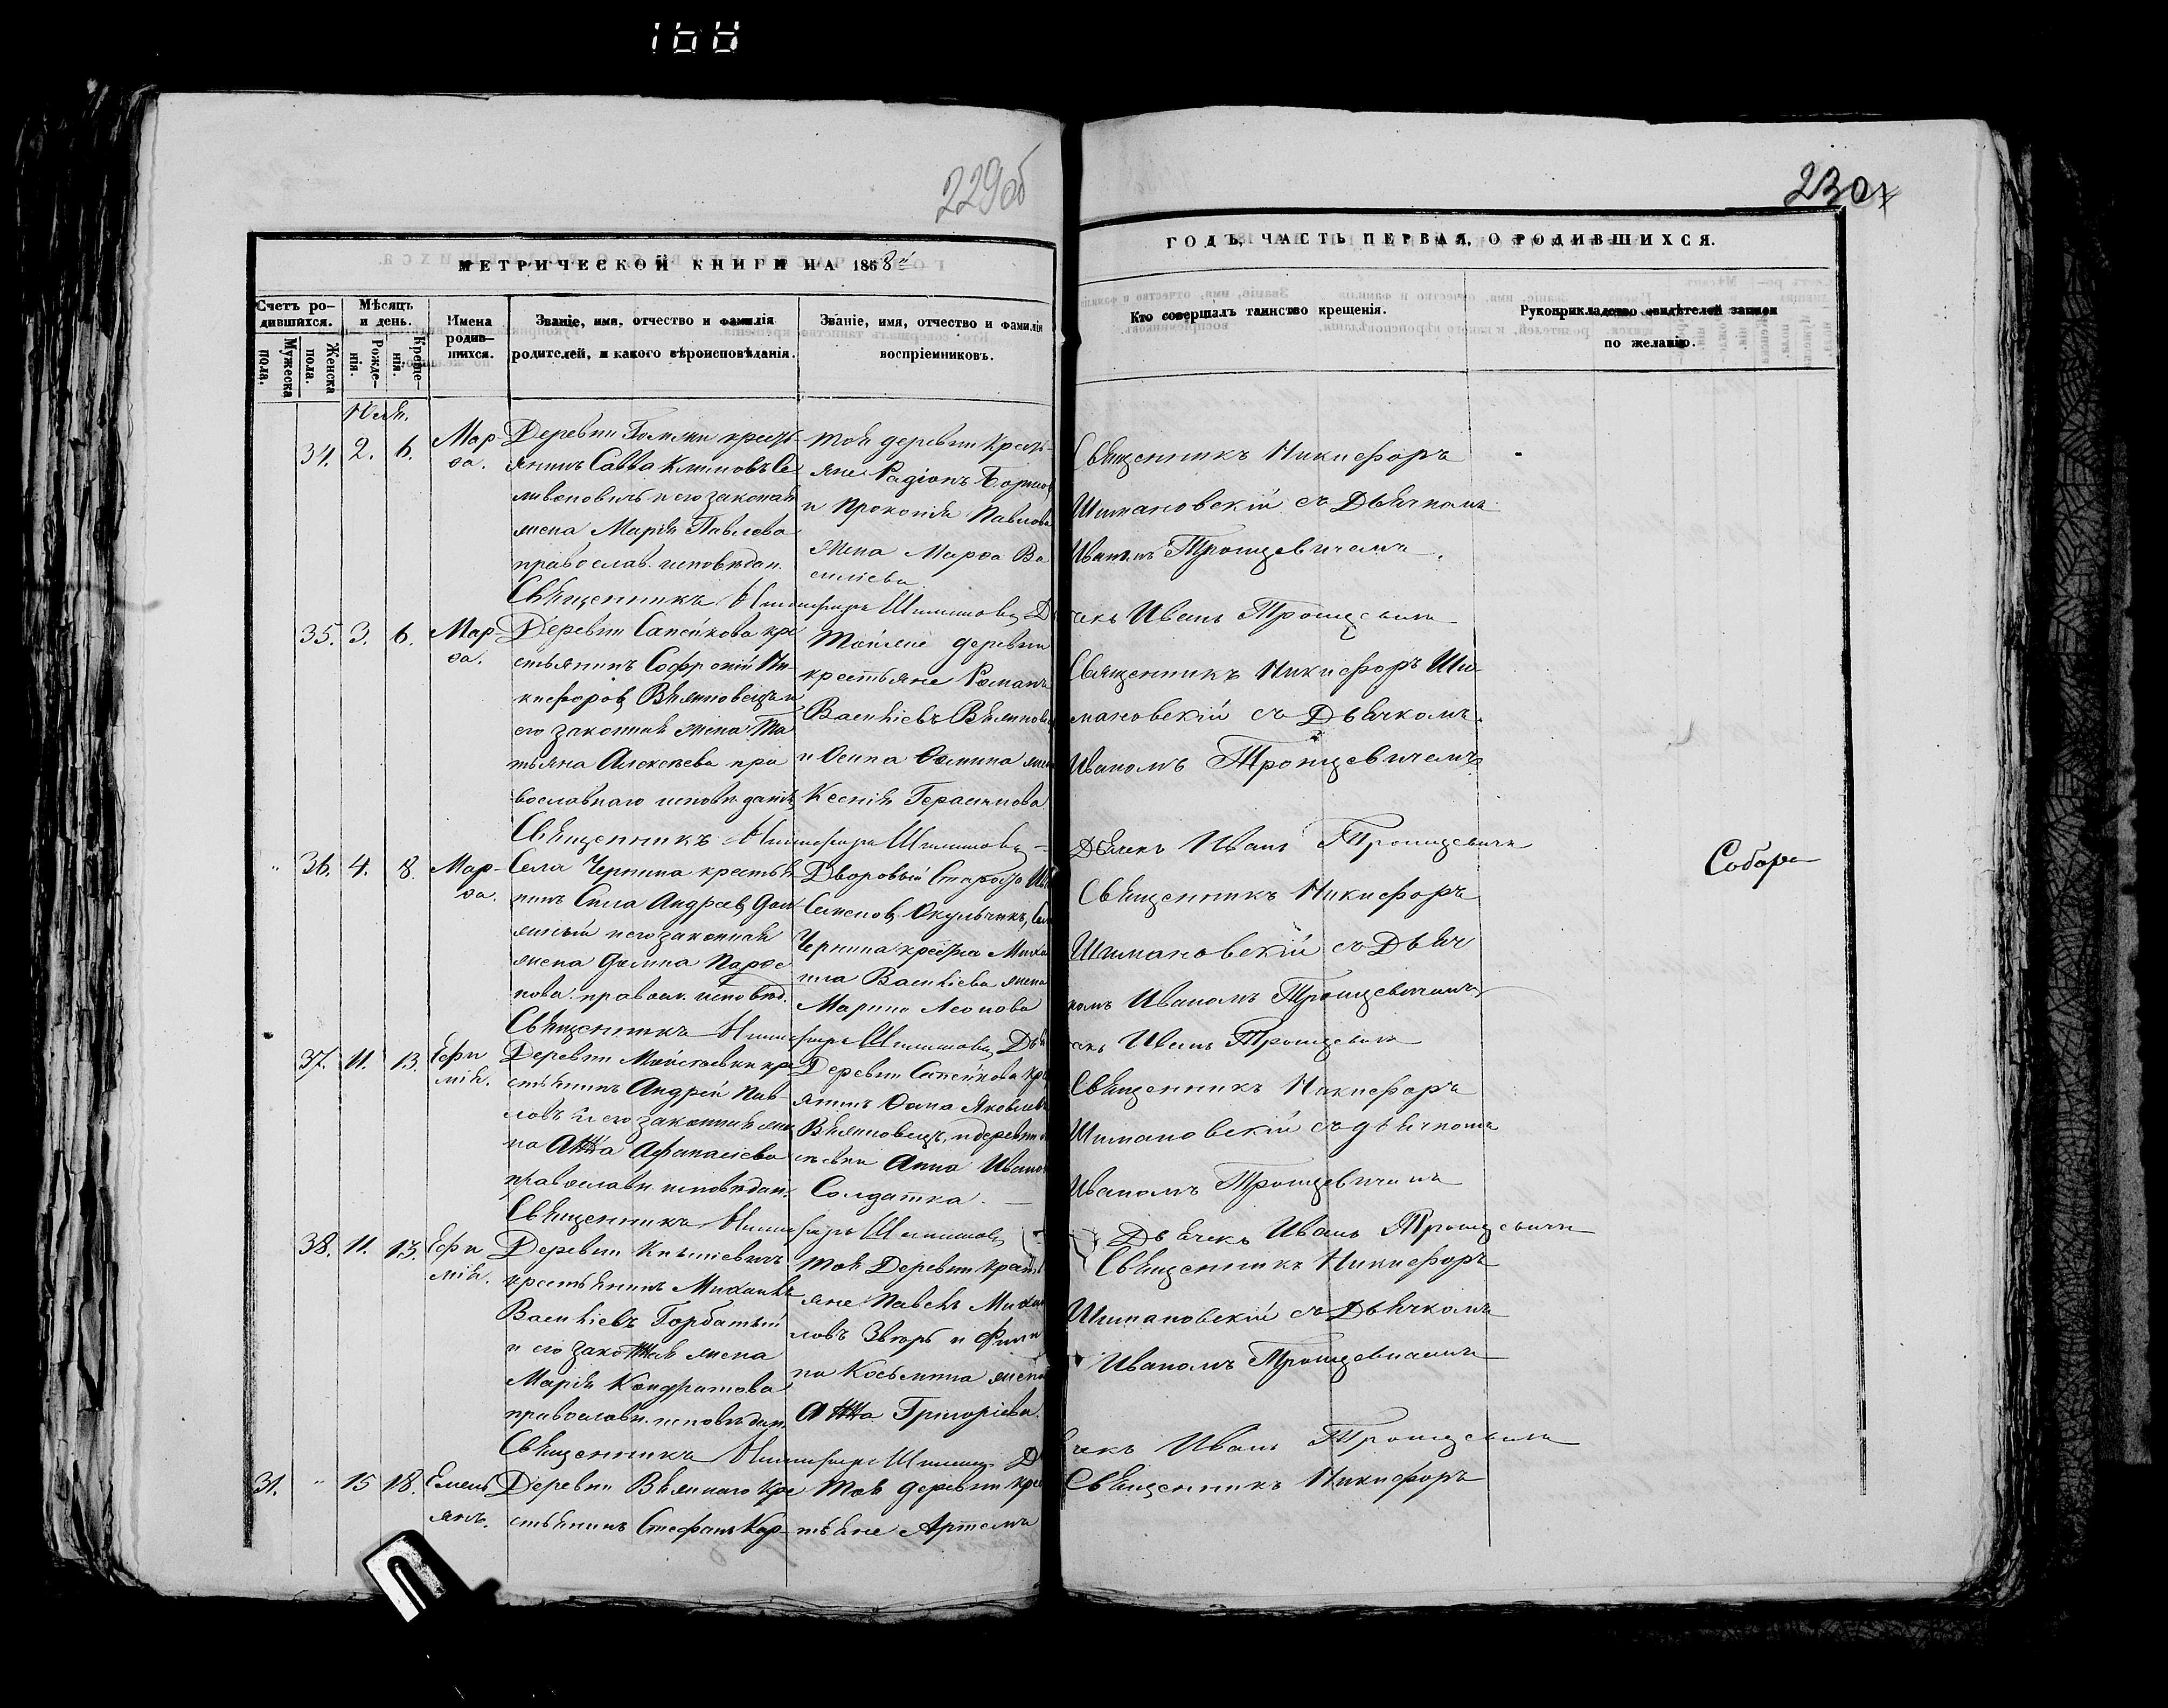 168
229об
230
МЕТРИЧЕСКОЙ КНИГИ НА 1868й
ГОДЪ, ЧАСТЬ ПЕРВАЯ, О РОДИВШИХСЯ.
Счетъ ро-
дившихся.
Мужеска
пола.
Женска
пола.
Мѣсяцъ
и день.
Рожде-
нія.
Креще-
нія.
Имена
родив-
шихся.
Званіе, имя, отчество и фамилія
родителей, и какого вѣроисповѣданія.
Званіе, имя, отчество и фамилія
воспріемниковъ.
Кто совершалъ таинство крещенія.
Рукоприкладство свидѣтелей записи
по желанію.
34. 2. 6.
Мар-
ѳа.
Деревни кресть-
янинъ Савва Климовъ Се
ливоновичъ и его законная
жена Марія Павлова
православ. исповѣдан.
тоя деревни кресть-
яне Радіонъ
и Прокопія Павлова
жена Марѳа Ва
силіева
Священникъ Никифоръ
Шимановскій съ Дьячкомъ
Иваномъ Тронцевичемъ.
Священникъ Никифоръ
Иванъ Тронцевичъ
35. 3. 6.
Мар-
ѳа.
Деревни Сапейкова кре
стьянинъ Софроній Ни-
кифоровъ Вяжновецъ и
его законная жена Та
тьяна Алексѣева пра
вославнаго исповѣданія
Тойже деревни
крестьяне Романъ
Васильевъ
и Осипа Ѳомина жена
Ксенія Герасимова
Священникъ Никифоръ Ши
мановскій съ Дьячкомъ
Иваномъ Тронцевичемъ
Священникъ Никифоръ
Дьячекъ Иванъ Тронцевичъ
36. 4. 8.
Мар-
ѳа.
Села Чернина крестья
нинъ Сила Андреевъ
и его законная
жена Домна Парѳе
нова. правосл. исповѣд.
Дворовый
Семеновъ Окульчикъ,
Чернина Миха
ила Васильева жена
Марина Леонова
Священникъ Никифоръ
Шимановскій съ Дьяч
комъ Иваномъ Тронцевичемъ
Собора
Священникъ Никифоръ
Иванъ Тронцевичъ
37. 11. 13.
Ефи
мія.
Деревни кре
стьянинъ Андрей Пав-
ловъ и его законная же
на Анна Афанасіева
православн. исповѣдан.
Деревни Сапейкова кре
янинъ Ѳома Яковлевъ
Вяжновецъ, и деревни
Анна Иванова
Солдатка.
Священникъ Никифоръ
Шимановскій съ дьячкомъ
Иваномъ Тронцевичемъ
Священникъ Никифоръ
Дьячекъ Иванъ Тронцевичъ
38. 11. 13.
Ефи
мія.
Деревни
крестьянинъ Михаилъ
Васильевъ Горбатый
и его законная жена
Марія Кондратова
православн. исповѣдан.
тоя Деревни кресть
яне Павелъ Михаи
ловъ Звѣрь и
Косьмина жена
Анна Григоріева.
Священникъ Никифоръ
Шимановскій съ Дьячкомъ
Иваномъ Тронцевичемъ
Священникъ Никифоръ
Иванъ Тронцевичъ
31. " 15 18.
Емель
янъ.
Деревни кре
стьянинъ Стефанъ Кар-
Тоя деревни крес
тьяне Артемъ
Священникъ Никифоръ